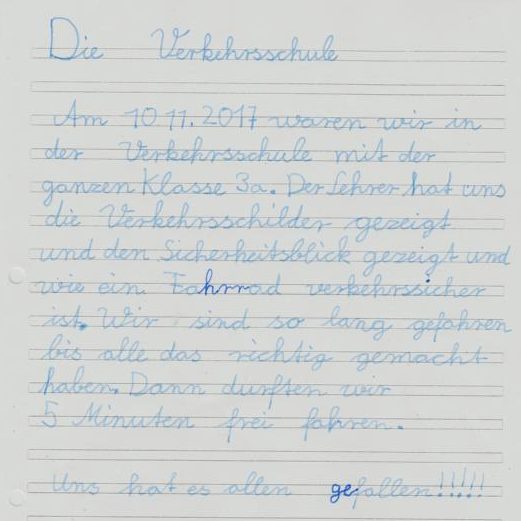 Die Verkehrsschule
Am 10 11. 2017 waren wir in
der Verkehrsschule mit der
ganzen Klasse 3a. Der Lehrer hat uns
die Verkehrsschilder gezeigt
und den Sicherheitsblick gezeigt und
wie ein Fahrrad verkehrssicher
ist. Wir sind so lang gefahren
bis alle das richtig gemacht
haben. Dann durften wir
5 Minuten frei fahren.
Uns hat es allen gefallen!!!!!